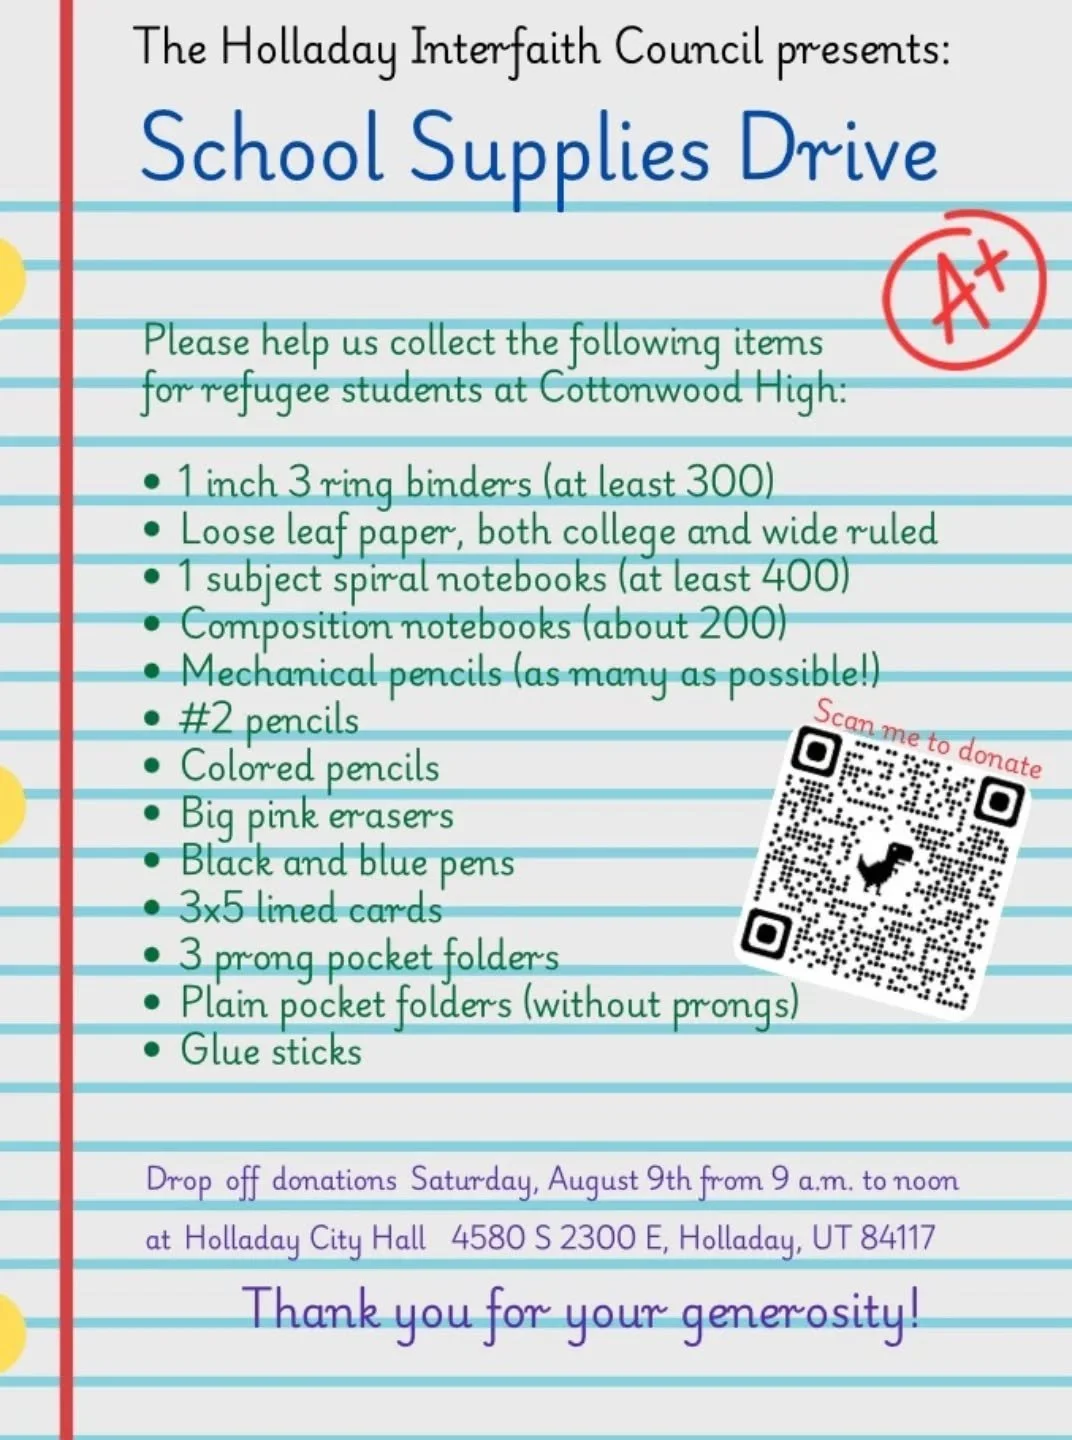 The Holladay Interfaith Council presents:
School Supplies Drive
A+
Please help us collect the following items
for refugee students at Cottonwood High:
• 1 inch 3 ring binders (at least 300)
• Loose leaf paper, both college and wide ruled
• 1 subject spiral notebooks (at least 400)
• Composition notebooks (about 200)
• Mechanical pencils (as many as possible!)
• #2 pencils
• Colored pencils
• Big pink erasers
• Black and blue pens
• 3x5 lined cards
• 3 prong pocket folders
• Plain pocket folders (without prongs)
• Glue sticks
Scan me to donate
Drop off donations Saturday, August 9th from 9 a.m. to noon
at Holladay City Hall 4580 S 2300 E, Holladay, UT 84117
Thank you for your generosity!